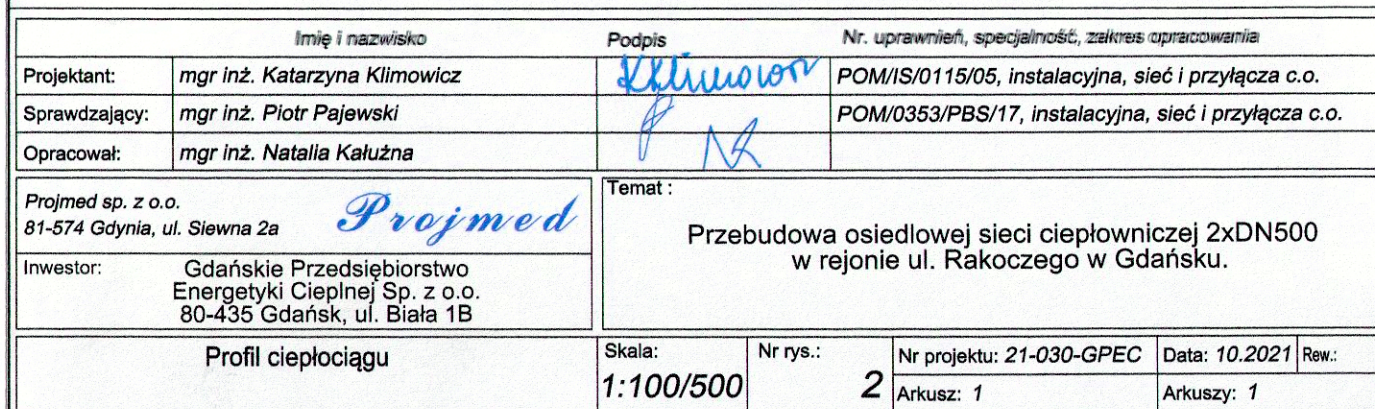 Imię i nazwisko Podpis Nr. uprawnień, specjalność, zakres opracowania
Projektant: mgr inż. Katarzyna Klimowicz KKlimowicz POM/IS/0115/05, instalacyjna, sieć i przyłącza c.o.
Sprawdzający: mgr inż. Piotr Pajewski POM/0353/PBS/17, instalacyjna, sieć i przyłącza c.o.
Opracował: mgr inż. Natalia Kałużna
Projmed sp. z o.o.
81-574 Gdynia, ul. Siewna 2a
Projmed
Inwestor: Gdańskie Przedsiębiorstwo
Energetyki Cieplnej Sp. z o.o.
80-435 Gdańsk, ul. Biała 1B
Temat :
Przebudowa osiedlowej sieci ciepłowniczej 2xDN500
w rejonie ul. Rakoczego w Gdańsku.
Profil ciepłociągu
Skala:
1:100/500
Nr rys.:
2
Nr projektu: 21-030-GPEC Data: 10.2021 Rew.:
Arkusz: 1 Arkuszy: 1